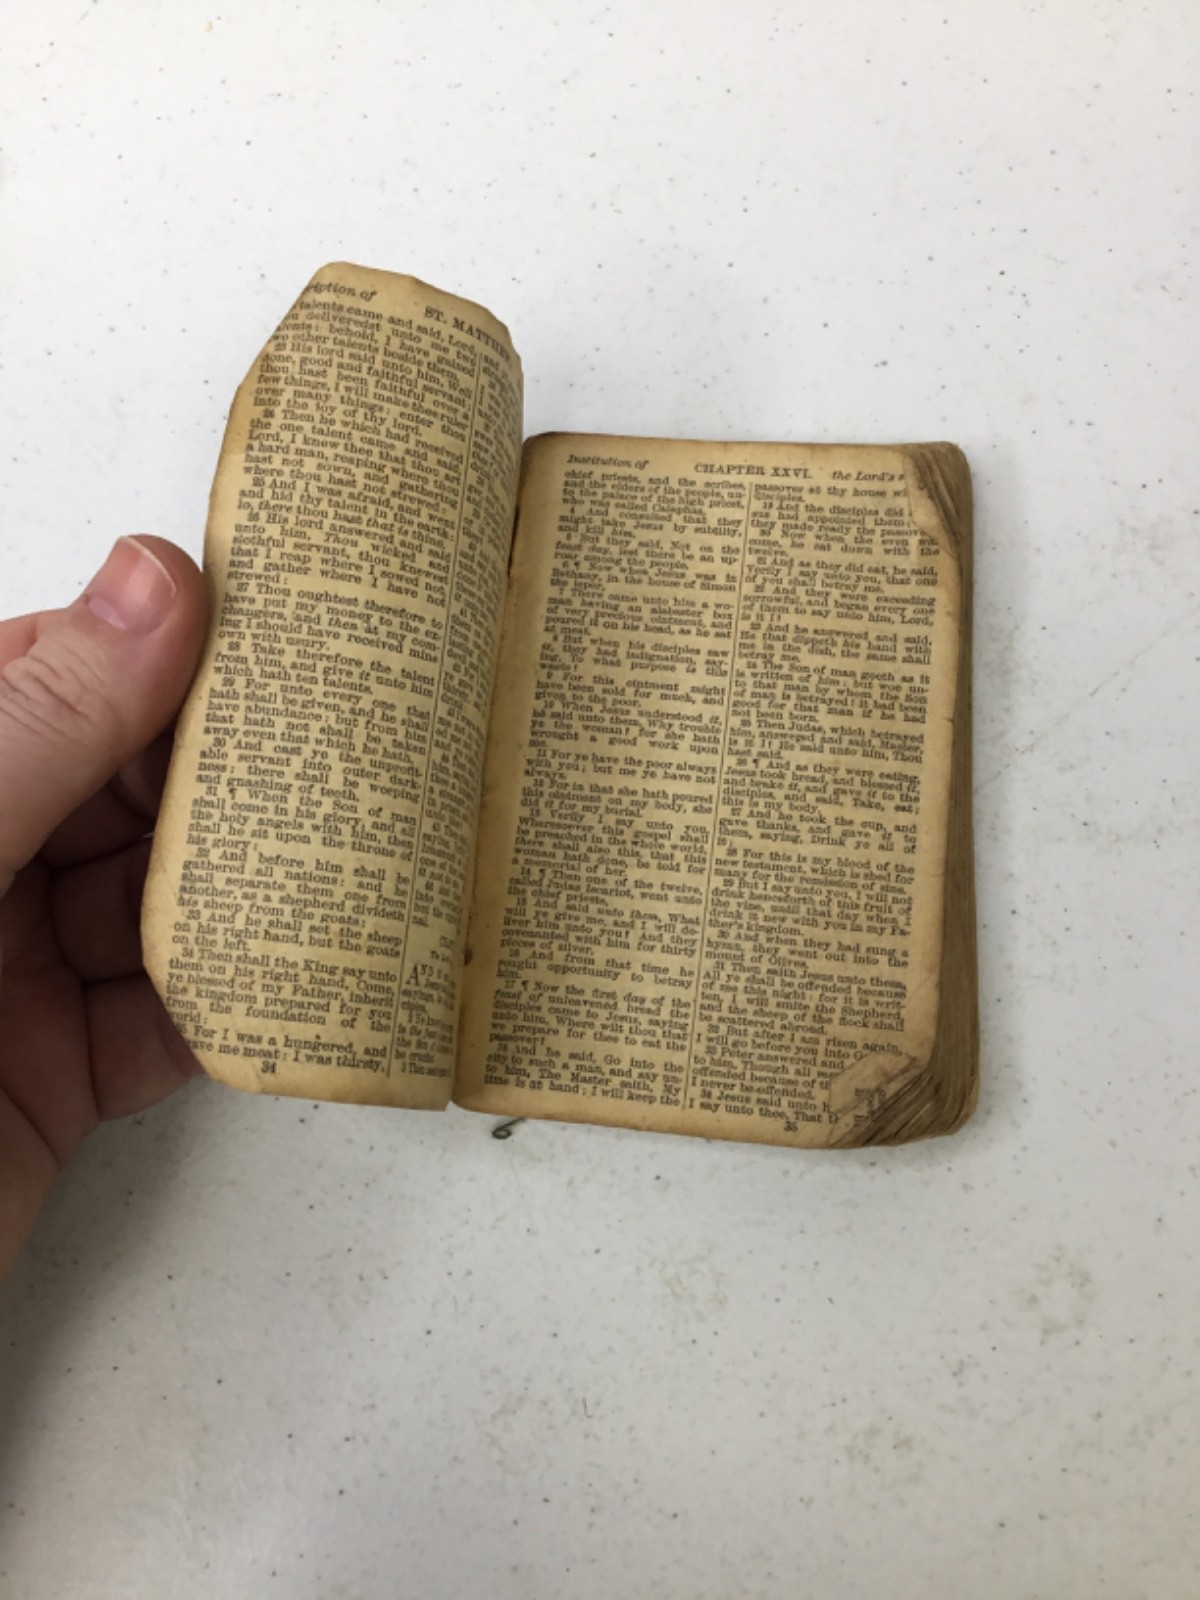 ription of
ST. MATTHEW
talents came and said, Lord,
deliveredst unto me two
talents: behold, I have gained
two other talents beside them.
23 His lord said unto him, Well
done, good and faithful servant;
thou hast been faithful over a
few things, I will make thee ruler
over many things: enter thou
into the joy of thy lord.
24 Then he which had received
the one talent came and said,
Lord, I knew thee that thou art
a hard man, reaping where thou
hast not sown, and gathering
where thou hast not strewed:
25 And I was afraid, and went
and hid thy talent in the earth:
lo, there thou hast that is thine.
26 His lord answered and said
unto him, Thou wicked and
slothful servant, thou knewest
that I reap where I sowed not,
and gather where I have not
strewed:
27 Thou oughtest therefore to
have put my money to the ex-
changers, and then at my com-
ing I should have received mine
own with usury.
28 Take therefore the talent
from him, and give it unto him
which hath ten talents.
29 For unto every one that
hath shall be given, and he shall
have abundance: but from him
that hath not shall be taken
away even that which he hath.
30 And cast ye the unprofit-
able servant into outer dark-
ness: there shall be weeping
and gnashing of teeth.
31 ¶ When the Son of man
shall come in his glory, and all
the holy angels with him, then
shall he sit upon the throne of
his glory:
32 And before him shall be
gathered all nations: and he
shall separate them one from
another, as a shepherd divideth
his sheep from the goats:
33 And he shall set the sheep
on his right hand, but the goats
on the left.
34 Then shall the King say unto
them on his right hand, Come,
ye blessed of my Father, inherit
the kingdom prepared for you
from the foundation of the
world:
35 For I was a hungered, and
gave me meat: I was thirsty,
34
Institution of
CHAPTER XXVI.
the Lord's s
chief priests, and the scribes,
and the elders of the people, un-
to the palace of the high priest,
who was called Caiaphas,
4 And consulted that they
might take Jesus by subtilty,
and kill him.
5 But they said, Not on the
feast day, lest there be an up-
roar among the people.
6 ¶ Now when Jesus was in
Bethany, in the house of Simon
the leper,
7 There came unto him a wo-
man having an alabaster box
of very precious ointment, and
poured it on his head, as he sat
at meat.
8 But when his disciples saw
it, they had indignation, say-
ing, To what purpose is this
waste?
9 For this ointment might
have been sold for much, and
given to the poor.
10 When Jesus understood it,
he said unto them, Why trouble
ye the woman? for she hath
wrought a good work upon
me.
11 For ye have the poor always
with you; but me ye have not
always.
12 For in that she hath poured
this ointment on my body, she
did it for my burial.
13 Verily I say unto you,
Wheresoever this gospel shall
be preached in the whole world,
there shall also this, that this
woman hath done, be told for
a memorial of her.
14 ¶ Then one of the twelve,
called Judas Iscariot, went unto
the chief priests,
15 And said unto them, What
will ye give me, and I will de-
liver him unto you? And they
covenanted with him for thirty
pieces of silver.
16 And from that time he
sought opportunity to betray
him.
17 ¶ Now the first day of the
feast of unleavened bread the
disciples came to Jesus, saying
unto him, Where wilt thou that
we prepare for thee to eat the
passover?
18 And he said, Go into the
city to such a man, and say un-
to him, The Master saith, My
time is at hand; I will keep the
passover at thy house wi
disciples.
19 And the disciples did
sus had appointed them;
they made ready the passove
20 Now when the even was
come, he sat down with the
twelve.
21 And as they did eat, he said,
Verily I say unto you, that one
of you shall betray me.
22 And they were exceeding
sorrowful, and began every one
of them to say unto him, Lord,
is it I?
23 And he answered and said,
He that dippeth his hand with
me in the dish, the same shall
betray me.
24 The Son of man goeth as it
is written of him: but woe un-
to that man by whom the Son
of man is betrayed! it had been
good for that man if he had
not been born.
25 Then Judas, which betrayed
him, answered and said, Master,
is it I? He said unto him, Thou
hast said.
26 ¶ And as they were eating,
Jesus took bread, and blessed it,
and brake it, and gave it to the
disciples, and said, Take, eat;
this is my body.
27 And he took the cup, and
gave thanks, and gave it to
them, saying, Drink ye all of
it;
28 For this is my blood of the
new testament, which is shed for
many for the remission of sins.
29 But I say unto you, I will not
drink henceforth of this fruit of
the vine, until that day when I
drink it new with you in my Fa-
ther's kingdom.
30 And when they had sung a
hymn, they went out into the
mount of Olives.
31 Then saith Jesus unto them,
All ye shall be offended because
of me this night: for it is writ-
ten, I will smite the Shepherd,
and the sheep of the flock shall
be scattered abroad.
32 But after I am risen again,
I will go before you into G
33 Peter answered and
to him, Though all me
offended because of th
I never be offended.
34 Jesus said unto h
I say unto thee, That t
35